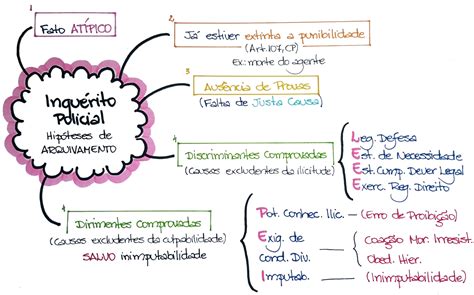 1
Fato ATÍPICO
2
Já estiver extinta a punibilidade
(Art.107,CP)
Ex: morte do agente
3
Ausência de Provas
(Falta de Justa Causa)
Inquérito
Policial
Hipóteses de
ARQUIVAMENTO
4
Discriminantes Comprovadas
(Causas excludentes da ilicitude)
Leg. Defesa
Est. de Necessidade
Est. Cump. Dever Legal
Exerc. Reg. Direito
4
Dirimentes Comprovadas
(Causas excludentes da culpabilidade)
SALVO inimputabilidade
Pot. Conhec. Ilic. — (Erro de Proibição)
Exig. de
Cond. Div.
Coação Mor. Irresist.
Obed. Hier.
Imputab. — (Inimputabilidade)